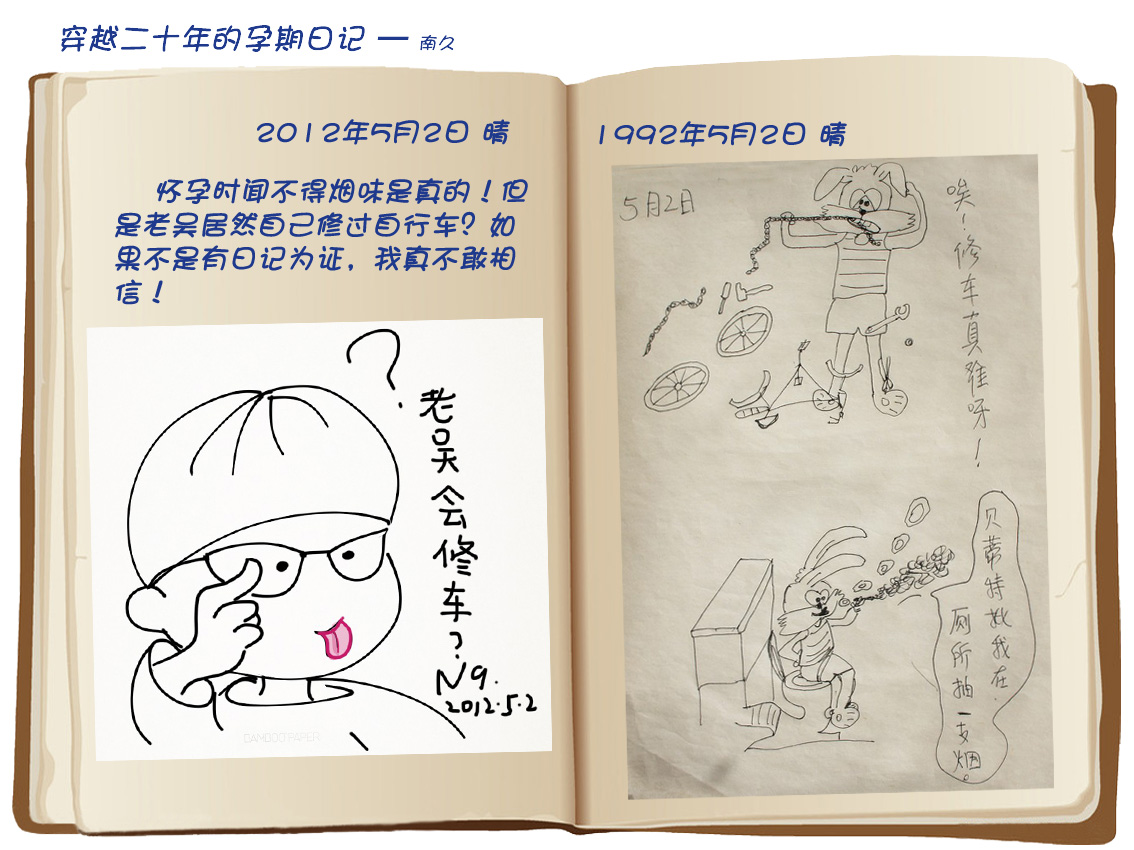 穿越二十年的孕期日记 — 南久
2012年5月2日 晴
怀孕时闻不得烟味是真的！但
是老吴居然自己修过自行车？如
果不是有日记为证，我真不敢相
信！
?
老吴会修车？
N9.
2012.5.2
BAMBOO PAPER
1992年5月2日 晴
5月2日
唉！修车真难呀！
贝蒂特批我在
厕所抽一支烟。